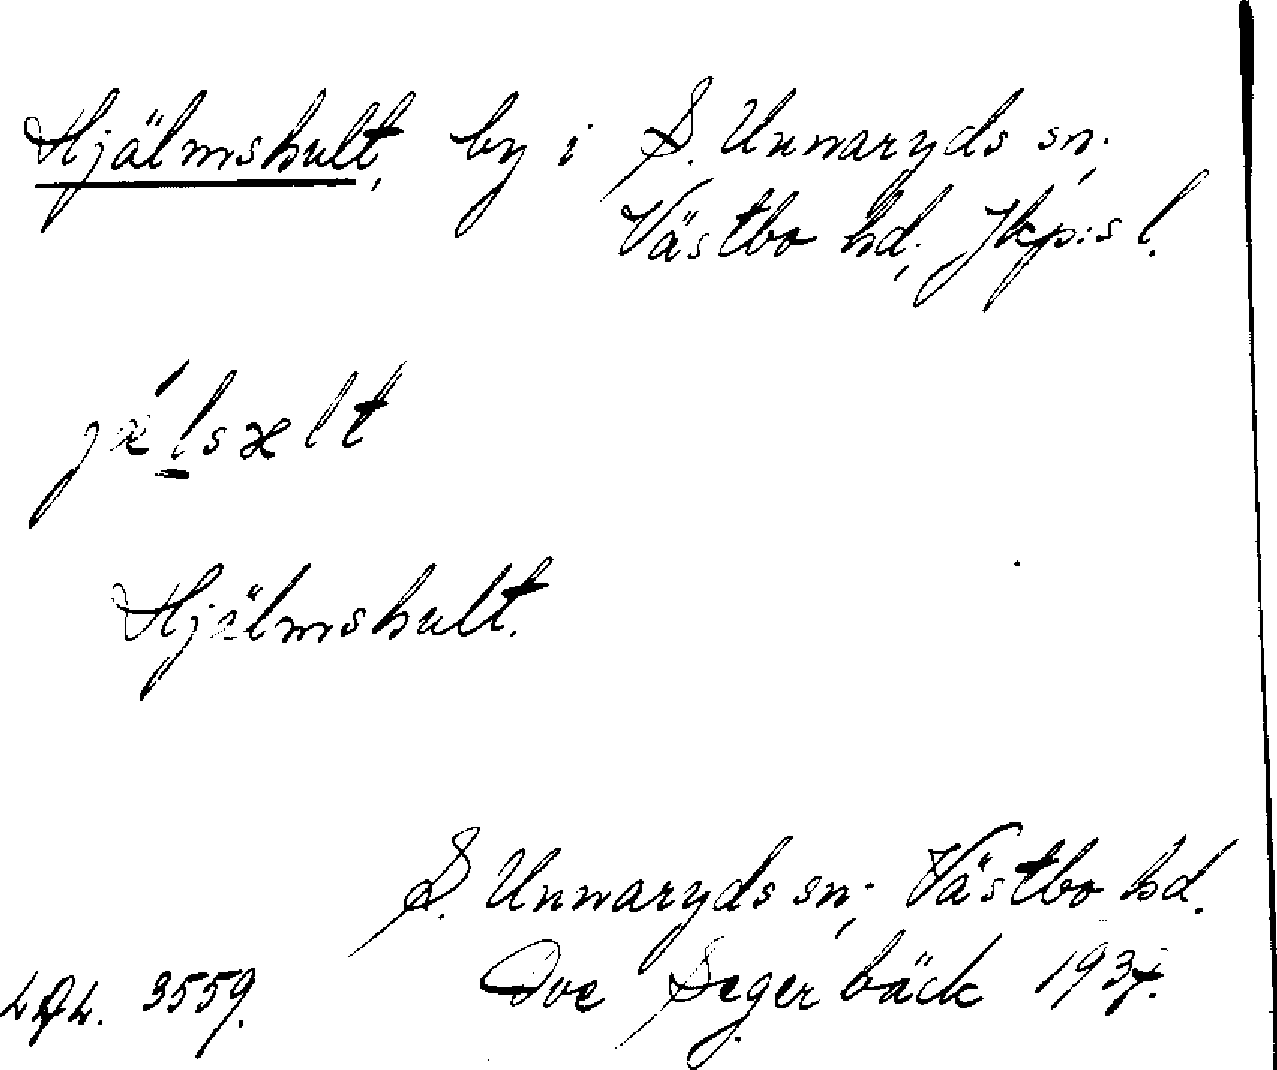 Hjälmshult, by i S. Unnaryds sn.,
Västbo hd., Jkp:s l.
jǽlsælt
Hjälmshult.
S. Unnaryds sn., Västbo hd.
Ove Segerbäck 1937.
3559.